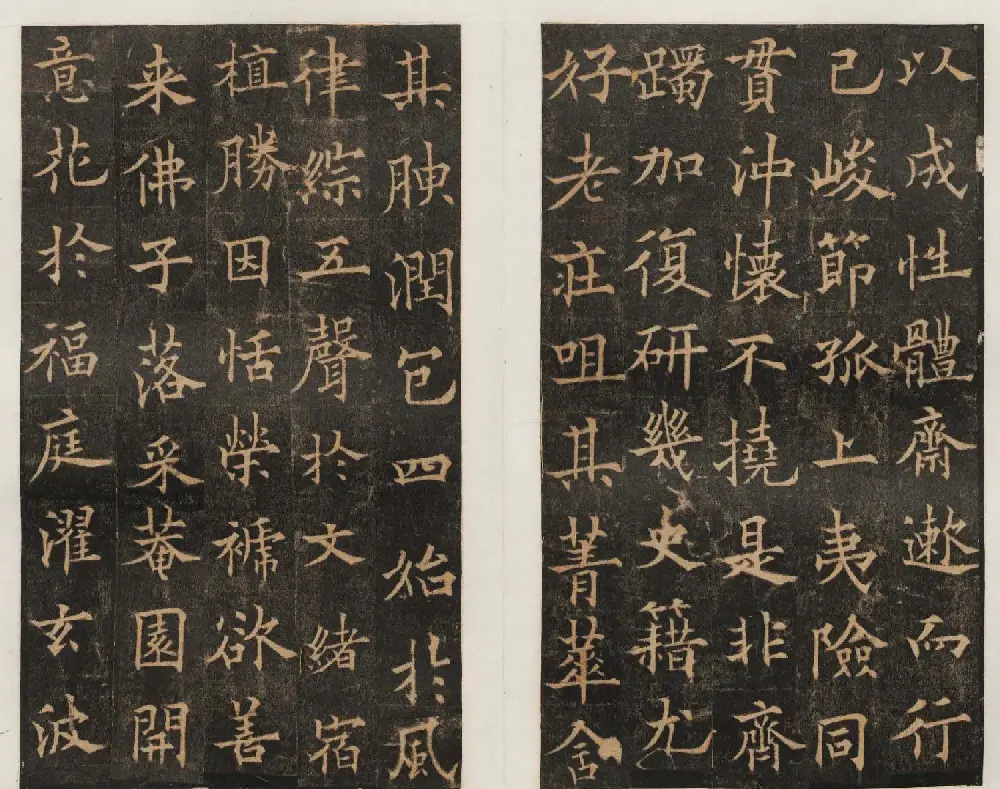 以成性體齋遬而行
己峻節孤上夷險同
貫沖懷不撓是非齊
躅加復研幾史籍尤
好老莊咀其菁華舍
其腴潤包四始於風
律綜五聲於文緒宿
植勝因恬榮褫欲善
来佛子落采菴園開
意花於福庭濯玄波